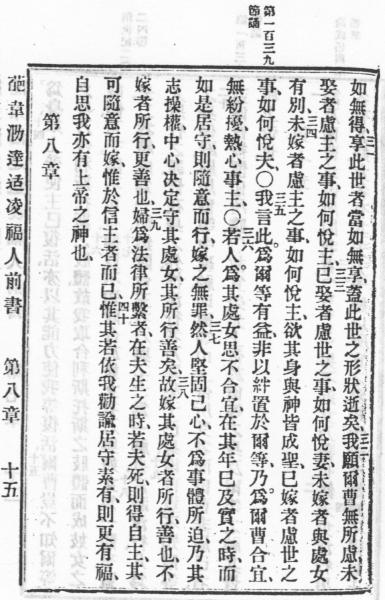 第一百三九
節誦
三一如無得享此世者當如無享蓋此世之形狀逝矣、三二我願爾曹無所慮未
娶者慮主之事如何悅主、三三已娶者慮世之事如何悅妻、未嫁者與處女
有別、三四未嫁者慮主之事如何悅主、欲其身與神皆成聖、已嫁者慮世之
事如何悅夫、〇三五我言此、爲爾等有益、非以絆置於爾等、乃爲爾曹合宜、
無紛擾熱心事主、〇三六若人爲其處女思不合宜、在其年已及賓之時、而
如是居守、則隨意而行、嫁之無罪、三七然人堅固己心、不爲事體所迫、乃其
志操權、中心決定守其處女、其所行善矣、三八故嫁其處女者所行善也、不
嫁者所行更善也、三九婦爲法律所繫者、在夫生之時、若夫死、則得自主、其
可隨意而嫁、惟於信主者而已、四十惟其若依我勸諭、居守素有、則更有福、
自思我亦有上帝之神也、
第八章
葩韋泐達适凌福人前書　第八章　十五